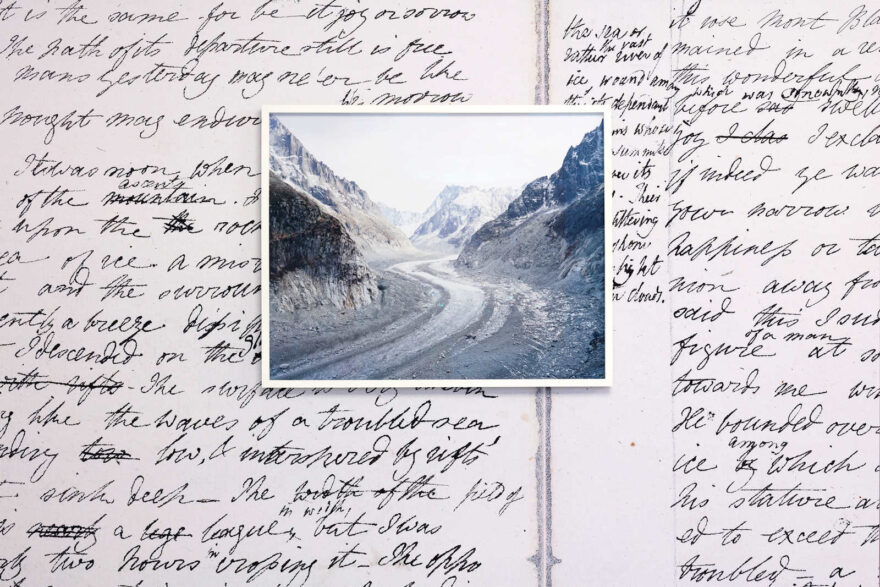 it is the same for be it joy or sorrow
The path of its departure still is free
mans yesterday may ne'er be like
his morrow
Nought may endur
It was noon, when
ascent
of the mountain.
upon the the rock
ea of ice. a mis
and the surroun
ently a breeze dissip
I descended on the
with rifts. The surface is very uneven
g like the waves of a troubled sea
nding low low, & interspersed by rifts
sink deep — The width of the field of
in width,
nearly a lege league, but I was
two hours in crossing it — The oppo
the sea or
the vast
rather river of
ice wound among
its dependant
summits
its
light
clouds.
it rose Mont Bla
mained in a re
this wonderful
which was
before sad swell
joy I clas I excla
if indeed ye wa
your narrow
happiness or ta
nion away fro
said this I sud
of a man
figure at so
towards me wi
He bounded over
among
ice by which
his stature a
ed to exceed th
troubled — a